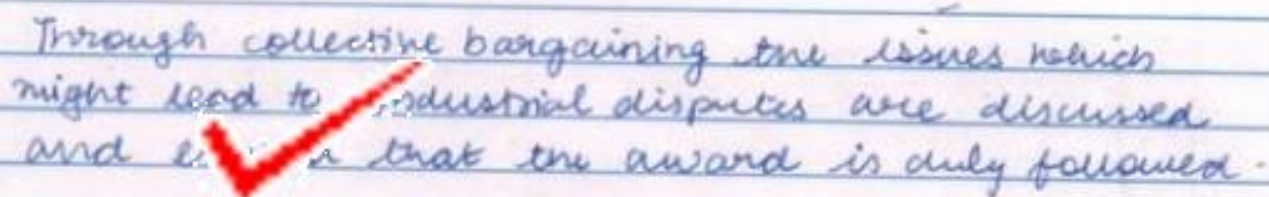 Through collective bargaining the issues which
might lead to industrial disputes are discussed
and that the award is duly followed.